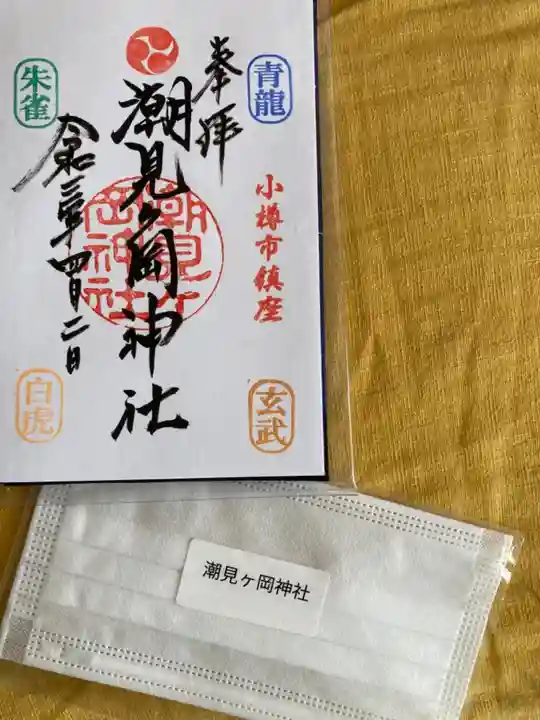 奉拝
青龍
小樽市鎮座
玄武
潮見ヶ岡神社
潮見ヶ岡神社
朱雀
令和三年四月二日
白虎
潮見ヶ岡神社